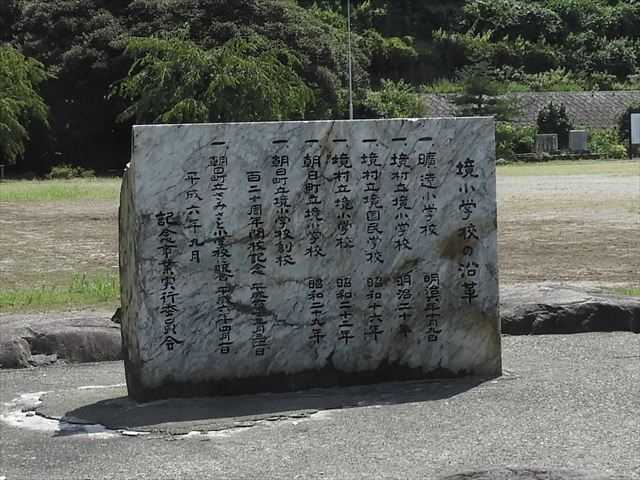 境小学校の沿革
一、曠造小学校 明治
一、境村立境小学校 明治二十年
一、境村立境国民学校 昭和十六年
一、境村立境小学校 昭和二十二年
一、朝日町立境小学校 昭和二十九年
一、朝日町立境小学校創校
百二十周年開校記念
一、朝日町立さみさと小学校 平成六年四月一日
平成六年九月
記念事業実行委員会